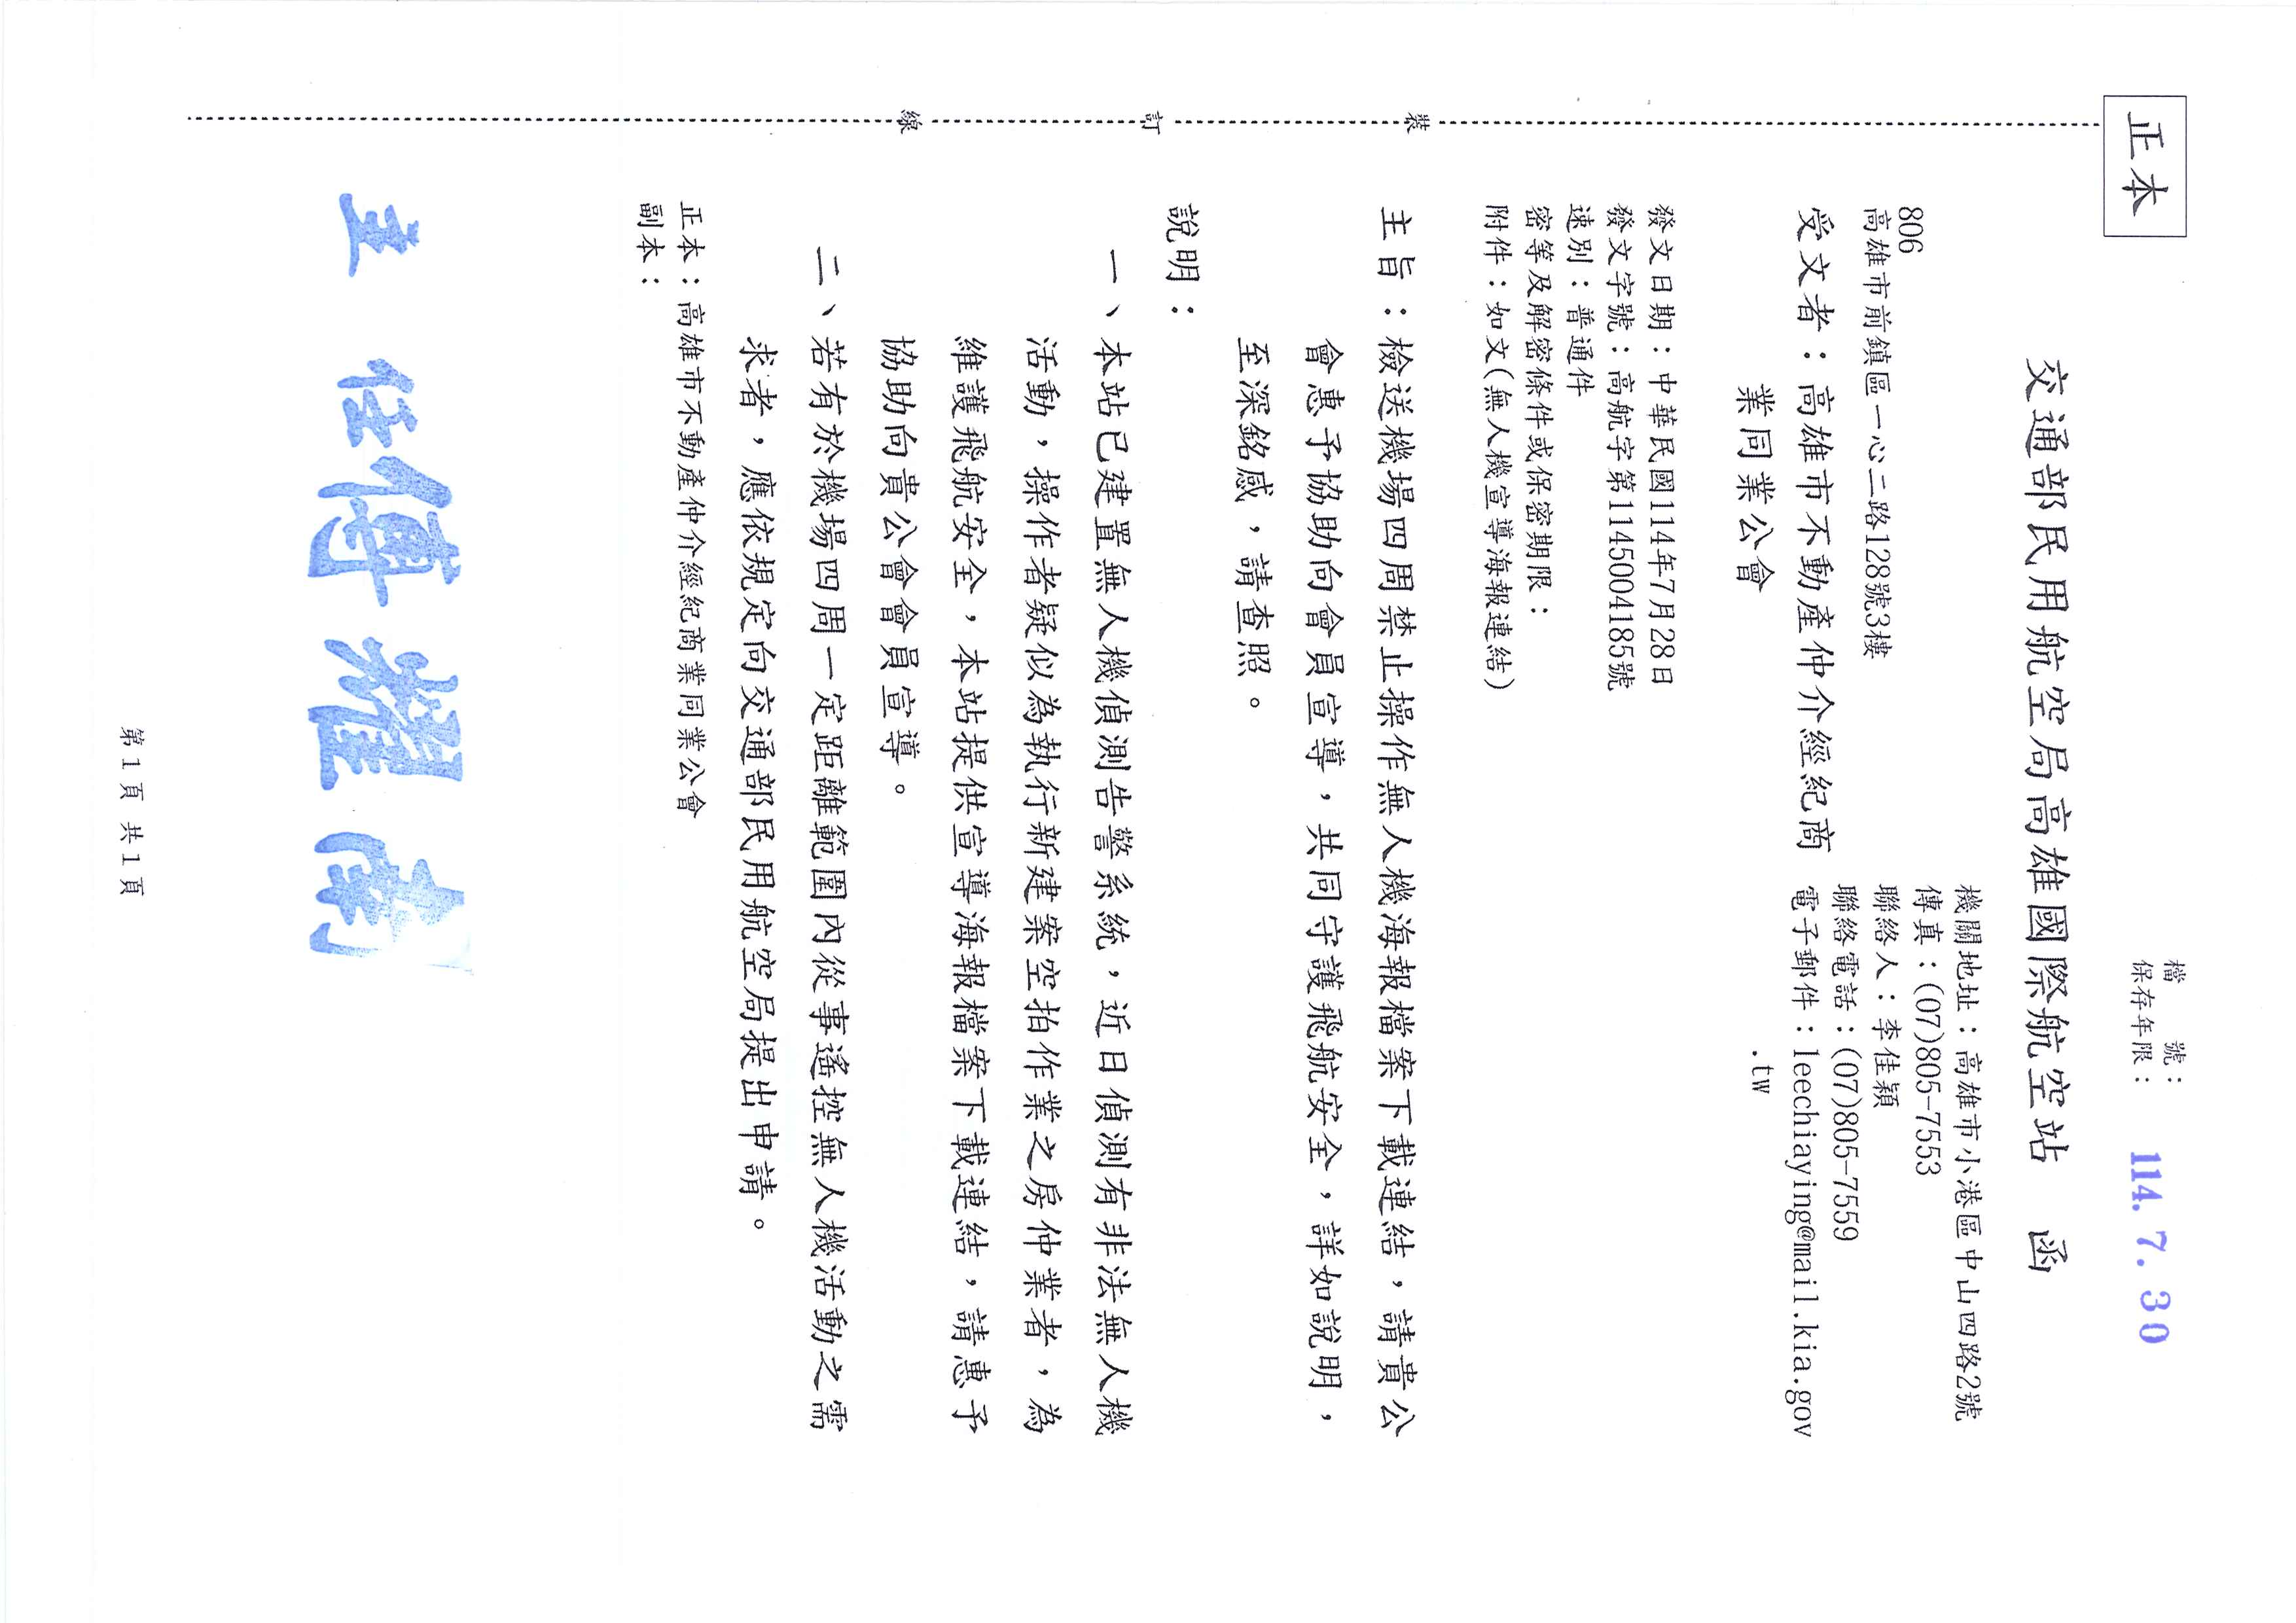 正本
檔　　號：
保存年限：
114. 7. 30
交通部民用航空局高雄國際航空站　函
機關地址：高雄市小港區中山四路2號
傳真：(07)805-7553
聯絡人：李佳穎
聯絡電話：(07)805-7559
電子郵件：leechiaying@mail.kia.gov
.tw
806
高雄市前鎮區一心二路128號3樓
受文者：高雄市不動產仲介經紀商
業同業公會
發文日期：中華民國114年7月28日
發文字號：高航字第1145004185號
速別：普通件
密等及解密條件或保密期限：
附件：如文(無人機宣導海報連結)
主旨：檢送機場四周禁止操作無人機海報檔案下載連結，請貴公
會惠予協助向會員宣導，共同守護飛航安全，詳如說明，
至深銘感，請查照。
說明：
一、本站已建置無人機偵測告警系統，近日偵測有非法無人機
活動，操作者疑似為執行新建案空拍作業之房仲業者，為
維護飛航安全，本站提供宣導海報檔案下載連結，請惠予
協助向貴公會會員宣導。
二、若有於機場四周一定距離範圍內從事遙控無人機活動之需
求者，應依規定向交通部民用航空局提出申請。
正本：高雄市不動產仲介經紀商業同業公會
副本：
主任傅耀蘭
裝
訂
線
第1頁 共1頁